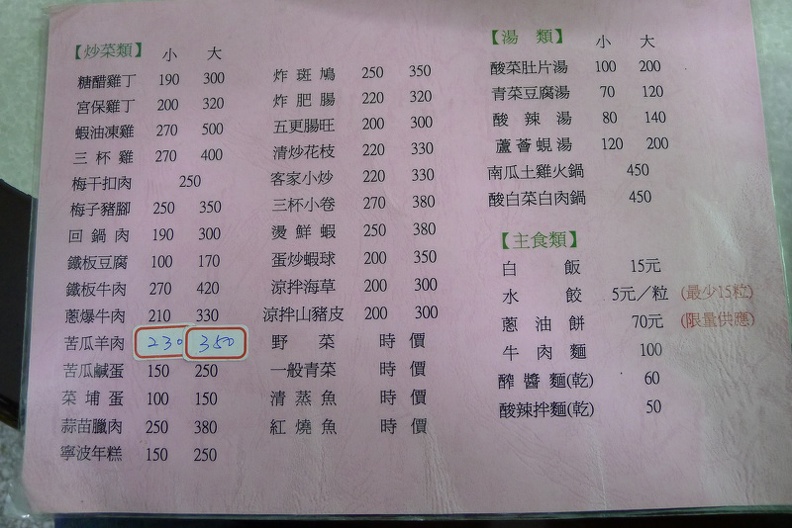 【炒菜類】 小 大
糖醋雞丁 190 300
宮保雞丁 200 320
蝦油凍雞 270 500
三杯雞 270 400
梅干扣肉 250
梅子豬腳 250 350
回鍋肉 190 300
鐵板豆腐 100 170
鐵板牛肉 270 420
蔥爆牛肉 210 330
苦瓜羊肉 230 350
苦瓜鹹蛋 150 250
菜埔蛋 100 150
蒜苗臘肉 250 380
寧波年糕 150 250
炸斑鳩 250 350
炸肥腸 220 320
五更腸旺 200 300
清炒花枝 220 330
客家小炒 220 330
三杯小卷 270 380
燙鮮蝦 250 380
蛋炒蝦球 200 350
涼拌海草 200 300
涼拌山豬皮 200 300
野菜 時價
一般青菜 時價
清蒸魚 時價
紅燒魚 時價
【湯類】 小 大
酸菜肚片湯 100 200
青菜豆腐湯 70 120
酸辣湯 80 140
蘆薈蜆湯 120 200
南瓜土雞火鍋 450
酸白菜白肉鍋 450
【主食類】
白飯 15元
水餃 5元／粒 (最少15粒)
蔥油餅 70元 (限量供應)
牛肉麵 100
醡醬麵(乾) 60
酸辣拌麵(乾) 50